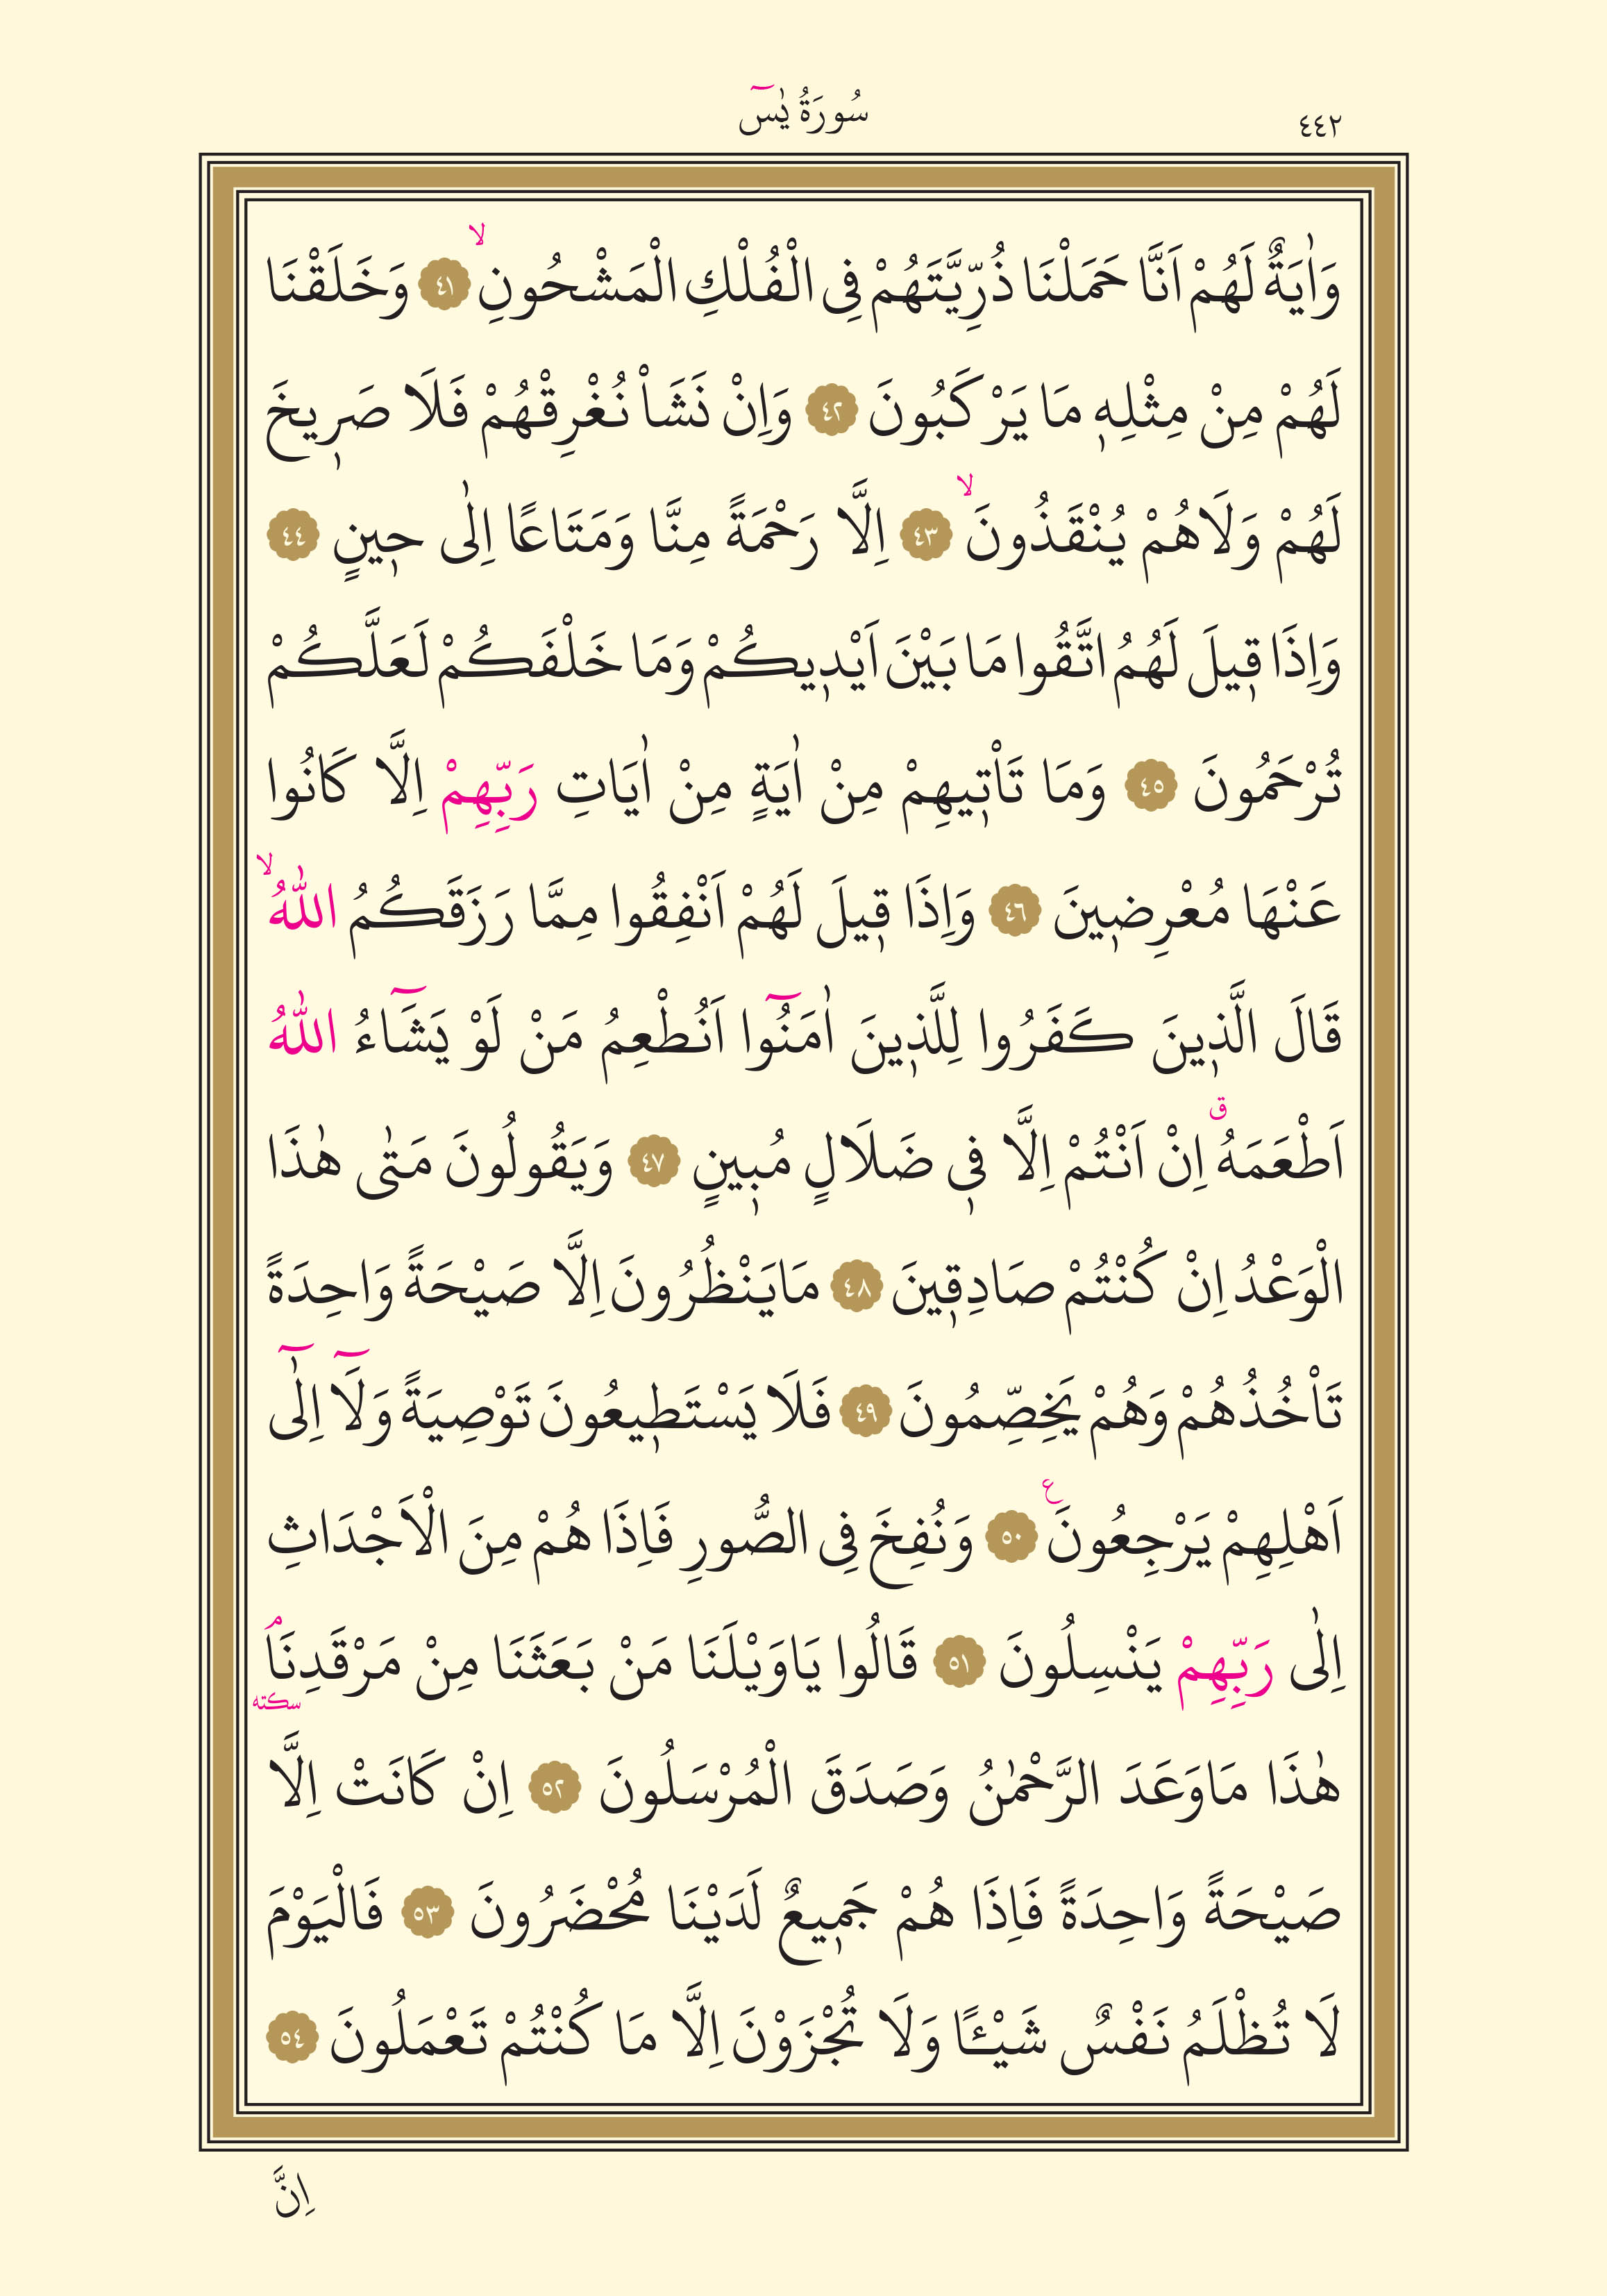 ٤٤٢
سُورَةُ يٰسٓ
وَاٰيَةٌ لَهُمْ اَنَّا حَمَلْنَا ذُرِّيَّتَهُمْ فِى الْفُلْكِ الْمَشْحُونِۙ ٤١ وَخَلَقْنَا
لَهُمْ مِنْ مِثْلِهٖ مَا يَرْكَبُونَ ٤٢ وَاِنْ نَشَاْ نُغْرِقْهُمْ فَلَا صَرٖيخَ
لَهُمْ وَلَاهُمْ يُنْقَذُونَۙ ٤٣ اِلَّا رَحْمَةً مِنَّا وَمَتَاعًا اِلٰى حٖينٍ ٤٤
وَاِذَا قٖيلَ لَهُمُ اتَّقُوا مَا بَيْنَ اَيْدٖيكُمْ وَمَا خَلْفَكُمْ لَعَلَّكُمْ
تُرْحَمُونَ ٤٥ وَمَا تَاْتٖيهِمْ مِنْ اٰيَةٍ مِنْ اٰيَاتِ رَبِّهِمْ اِلَّا كَانُوا
عَنْهَا مُعْرِضٖينَ ٤٦ وَاِذَا قٖيلَ لَهُمْ اَنْفِقُوا مِمَّا رَزَقَكُمُ اللّٰهُۙ
قَالَ الَّذٖينَ كَفَرُوا لِلَّذٖينَ اٰمَنُٓوا اَنُطْعِمُ مَنْ لَوْ يَشَٓاءُ اللّٰهُ
اَطْعَمَهُۗ اِنْ اَنْتُمْ اِلَّا فٖى ضَلَالٍ مُبٖينٍ ٤٧ وَيَقُولُونَ مَتٰى هٰذَا
الْوَعْدُ اِنْ كُنْتُمْ صَادِقٖينَ ٤٨ مَايَنْظُرُونَ اِلَّا صَيْحَةً وَاحِدَةً
تَاْخُذُهُمْ وَهُمْ يَخِصِّمُونَ ٤٩ فَلَا يَسْتَطٖيعُونَ تَوْصِيَةً وَلَٓا اِلٰٓى
اَهْلِهِمْ يَرْجِعُونَ ع ٥٠ وَنُفِخَ فِى الصُّورِ فَاِذَا هُمْ مِنَ الْاَجْدَاثِ
اِلٰى رَبِّهِمْ يَنْسِلُونَ ٥١ قَالُوا يَاوَيْلَنَا مَنْ بَعَثَنَا مِنْ مَرْقَدِنَاۘ سكته
هٰذَا مَاوَعَدَ الرَّحْمٰنُ وَصَدَقَ الْمُرْسَلُونَ ٥٢ اِنْ كَانَتْ اِلَّا
صَيْحَةً وَاحِدَةً فَاِذَا هُمْ جَمٖيعٌ لَدَيْنَا مُحْضَرُونَ ٥٣ فَالْيَوْمَ
لَا تُظْلَمُ نَفْسٌ شَيْـًٔا وَلَا تُجْزَوْنَ اِلَّا مَا كُنْتُمْ تَعْمَلُونَ ٥٤
اِنَّ